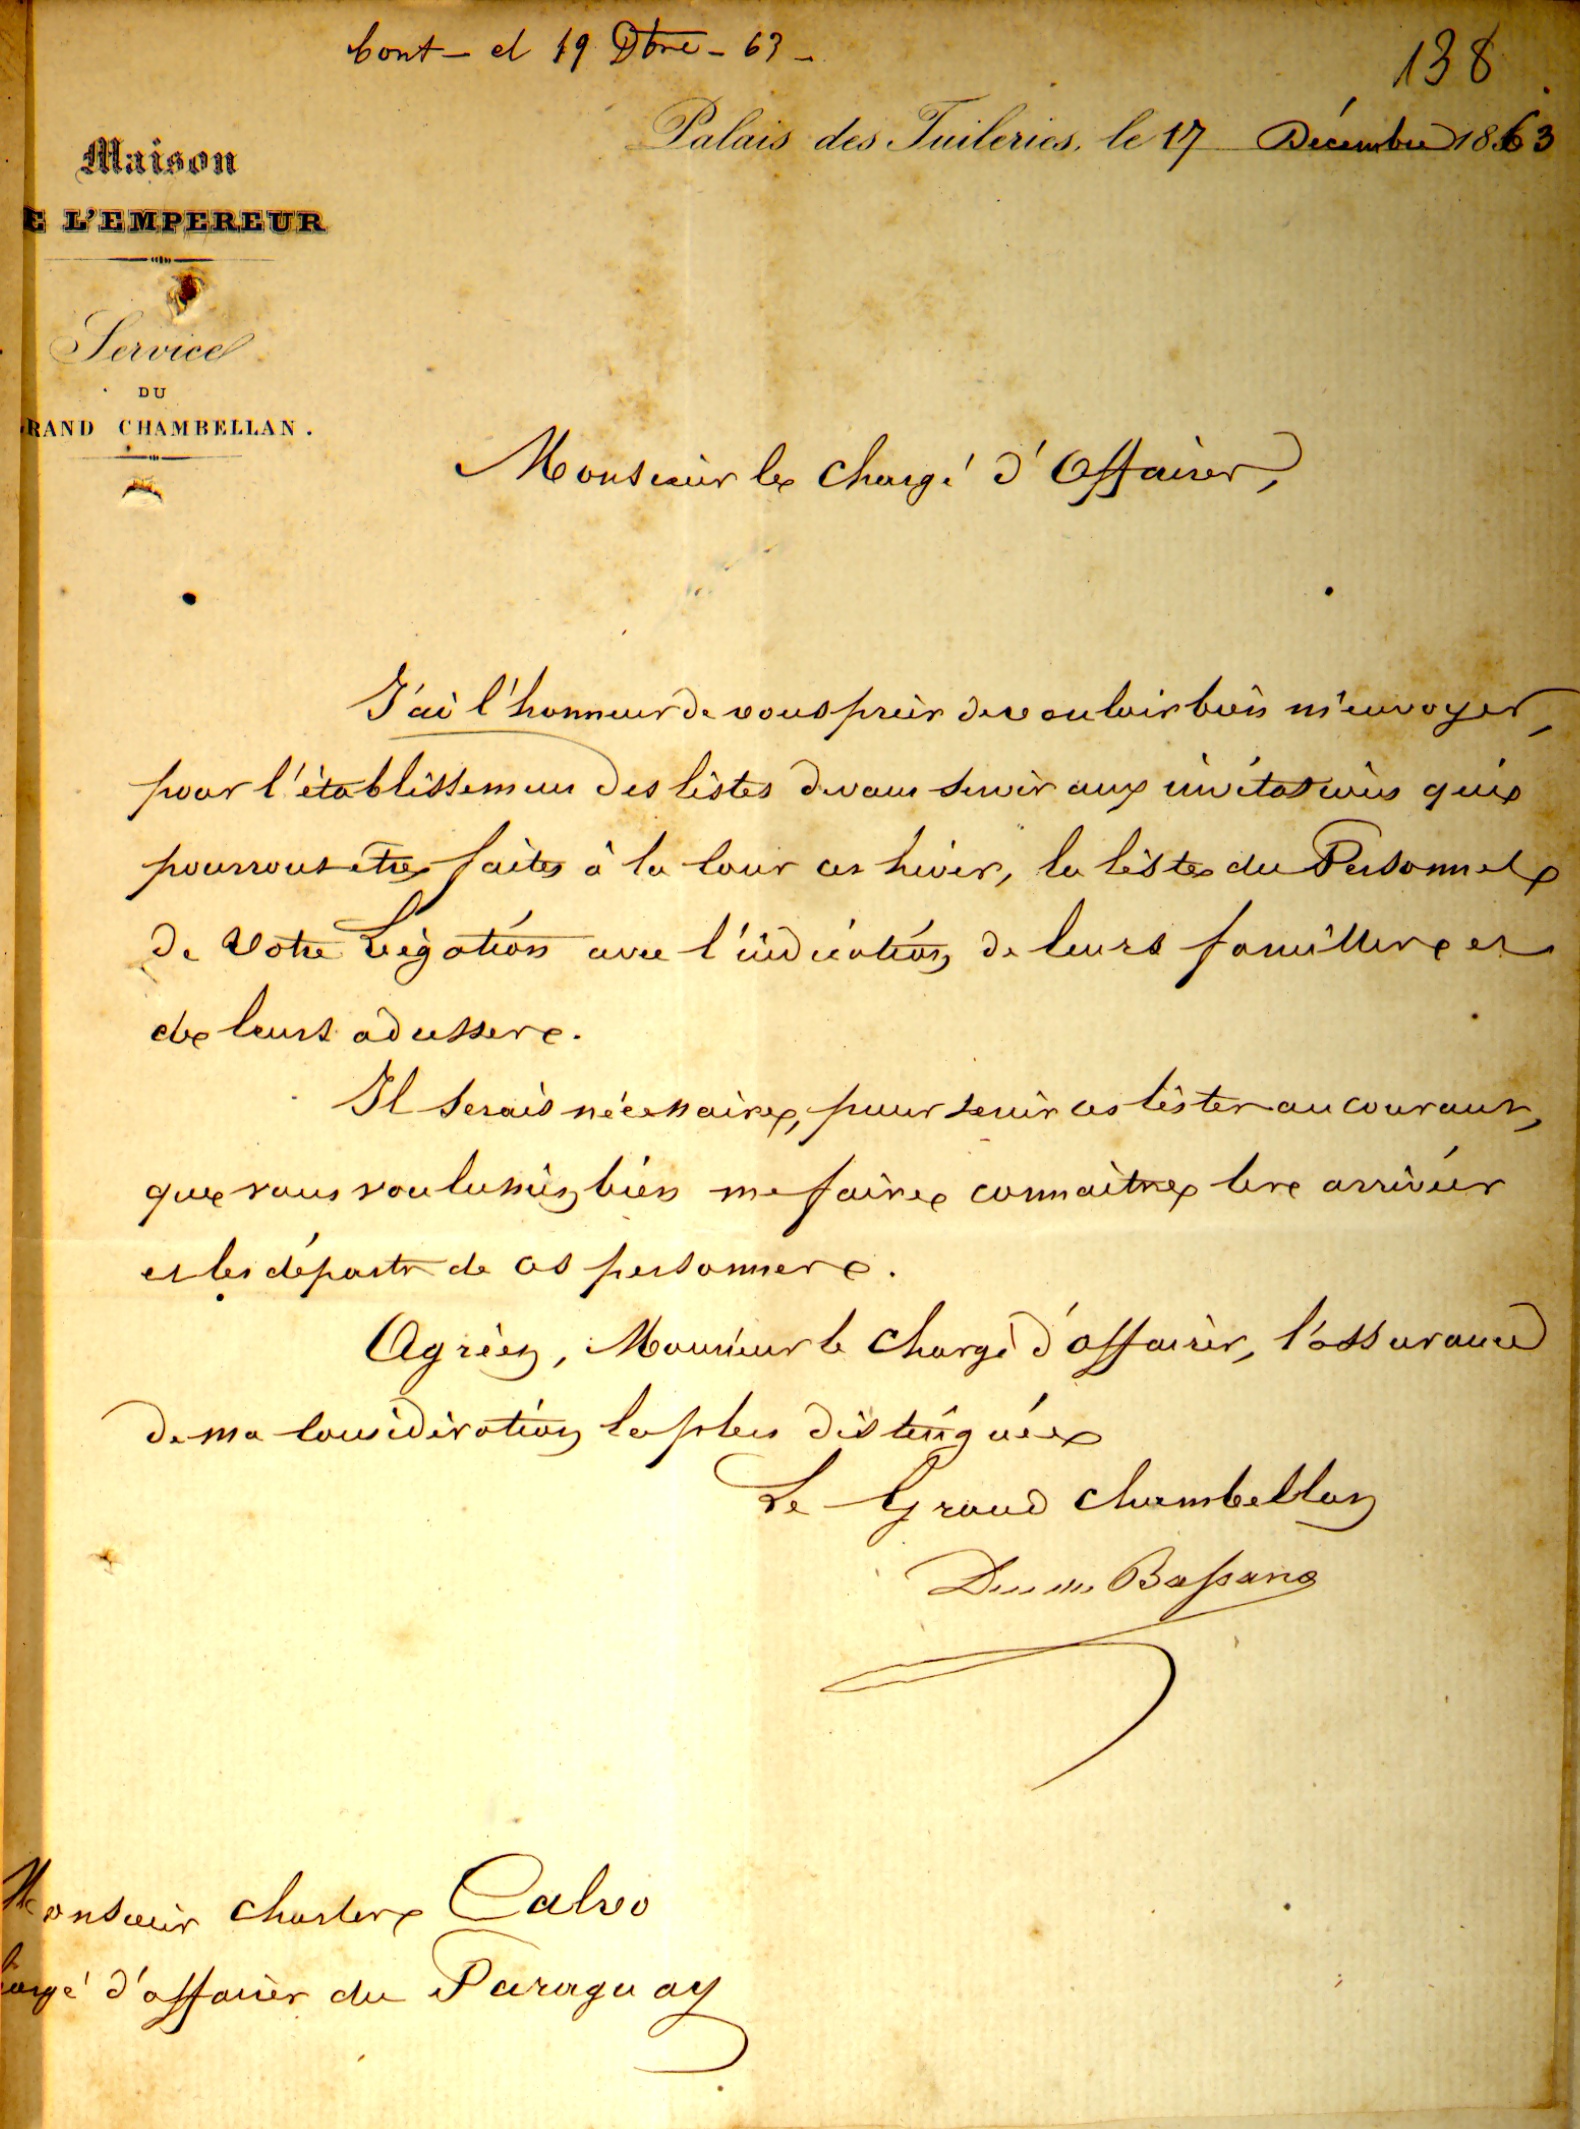 Cont- el 19 Dbre - 63 -
138
Palais des Tuileries, le 17 Décembre 1863
Maison
E L'EMPEREUR
Service
DU
RAND CHAMBELLAN.
Monsieur le Chargé d'Affaires,
J'ai l'honneur de vous prier de vouloir bien m'envoyer,
pour l'établissement des listes devant servir aux invitations qui
pourront être faites à la Cour cet hiver, la liste du Personnel
de Votre Légation avec l'indication de leurs familles et
de leurs adresses.
Il serait nécessaire, pour tenir ces listes au courant,
que vous voulussiez bien me faire connaître les arrivées
et les départs de ces personnes.
Agréez, Monsieur le Chargé d'affaires, l'assurance
de ma Considération la plus distinguée
Le Grand Chambellan
Duc de Bassano
Monsieur Charles Calvo
hargé d'affaires du Paraguay